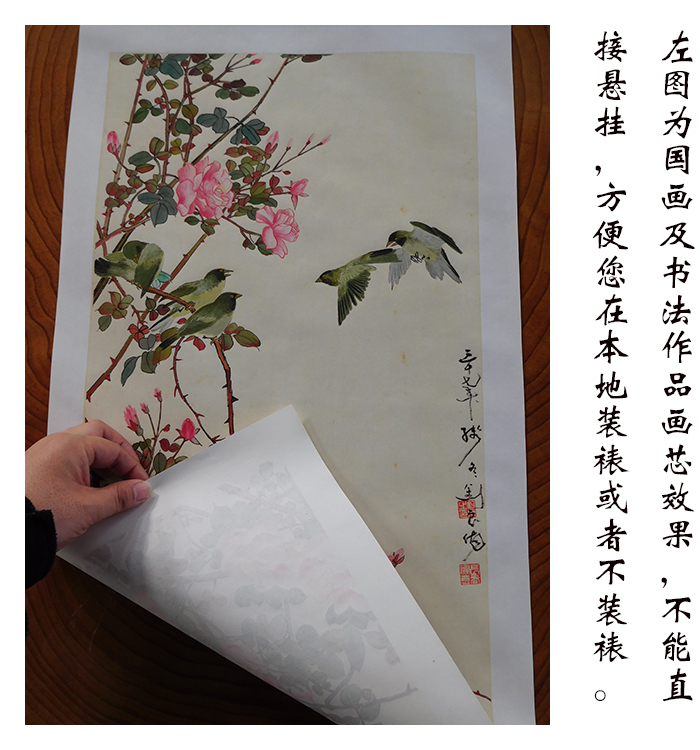 左图为国画及书法作品画芯效果，不能直
接悬挂，方便您在本地装裱或者不装裱。
三十七年